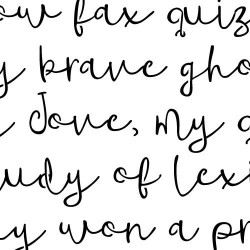 ow fax quiz
y brave gho
Jove, my
udy of lexi
y won a pr